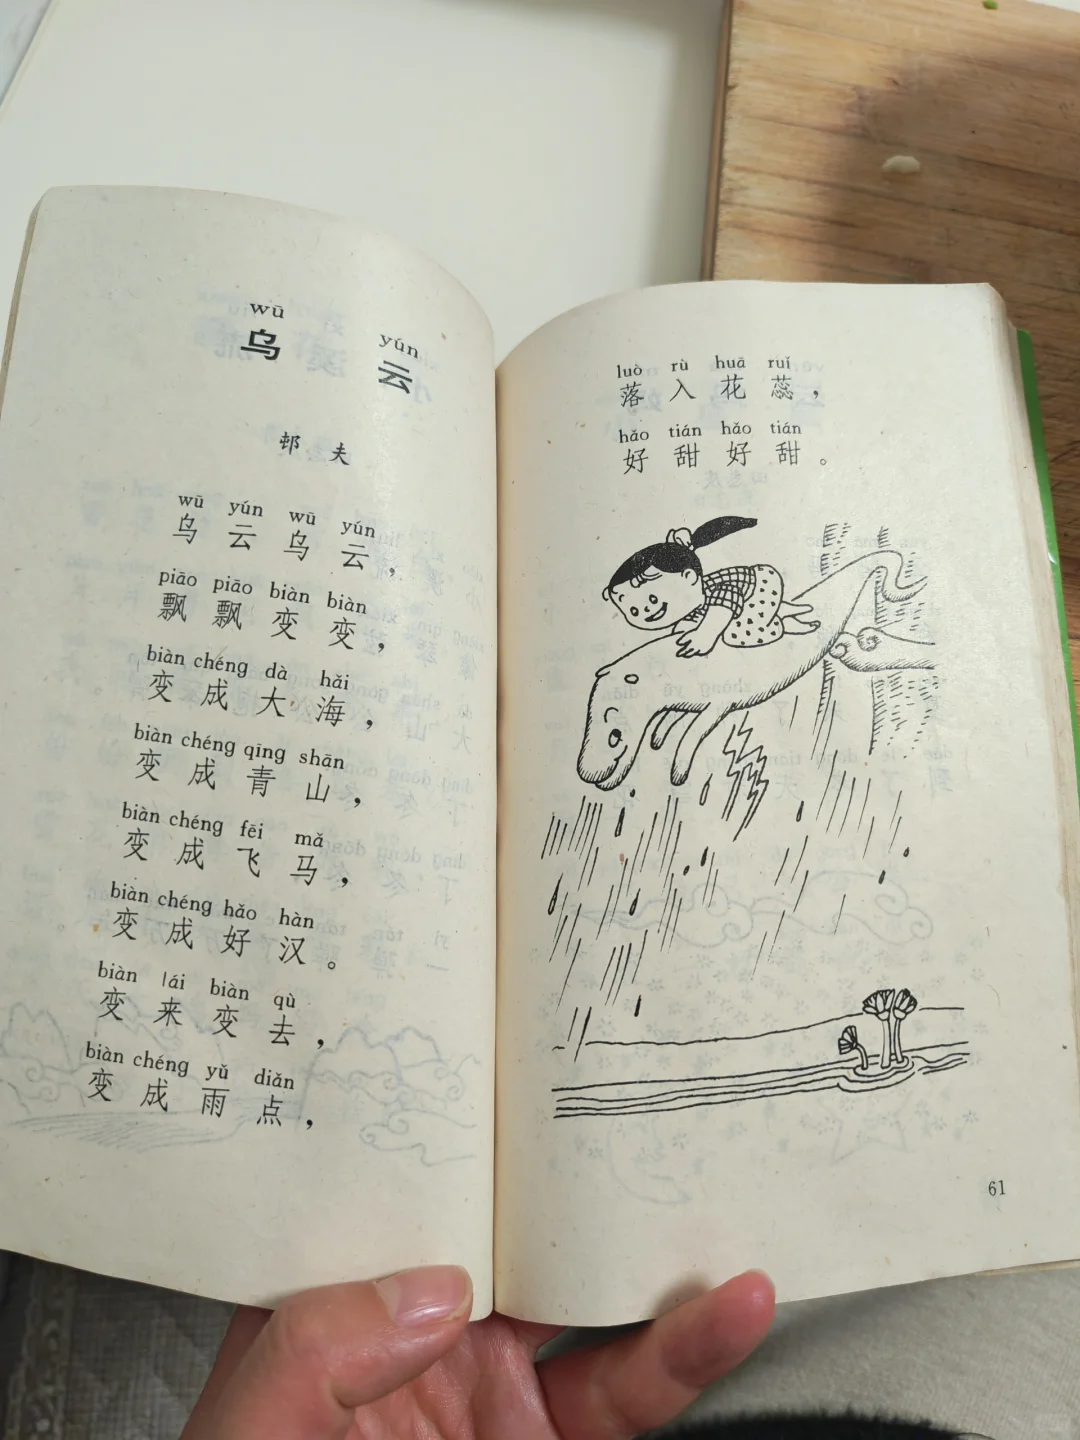 wū yún
乌云
邨夫
wū yún wū yún
乌云乌云，
piāo piāo biàn biàn
飘飘变变，
biàn chéng dà hǎi
变成大海，
biàn chéng qīng shān
变成青山，
biàn chéng fēi mǎ
变成飞马，
biàn chéng hǎo hàn
变成好汉。
biàn lái biàn qù
变来变去，
biàn chéng yǔ diǎn
变成雨点，
luò rù huā ruǐ
落入花蕊，
hǎo tián hǎo tián
好甜好甜。
61